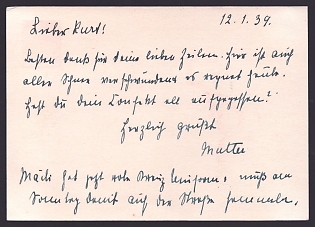 12.1.39.
Lieber Kurt!
Besten Dank für Deine lieben Zeilen. Hier ist auch
aller Schnee verschwunden es regnet heute.
Hast du dein Konfekt all aufgegessen?
Herzlich grüßt
Mutter
Mädi hat jetzt rote Kreuz Uniform u muß am
Sonntag damit auf der Straße sammeln.